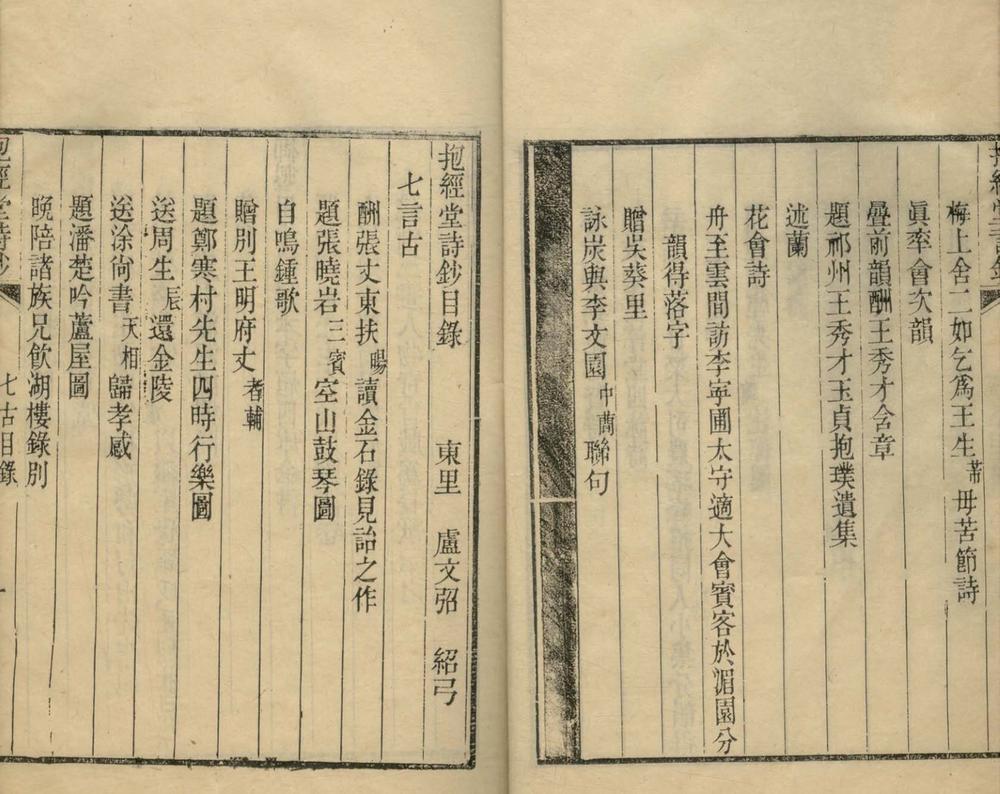 抱經堂詩鈔
梅上舍二如乞爲王生芾母苦節詩
眞率會次韻
疊前韻酬王秀才含章
題祁州王秀才玉貞抱璞遺集
述蘭
花會詩
舟至雲間訪李寕圃太守適大會賓客於湄園分
韻得落字
贈吳葵里
詠炭與李文園中蕳聯句
抱經堂詩鈔目錄
東里 盧文弨 紹弓
七言古
酬張丈東扶暘讀金石錄見詒之作
題張曉岩三賓空山鼓琴圖
自鳴鍾歌
贈別王明府丈者輔
題鄭寒村先生四時行樂圖
送周生辰還金陵
送涂尙書天相歸孝感
題潘楚吟蘆屋圖
晚陪諸族兄飮湖樓錄別
抱經堂詩鈔 七古目錄 一